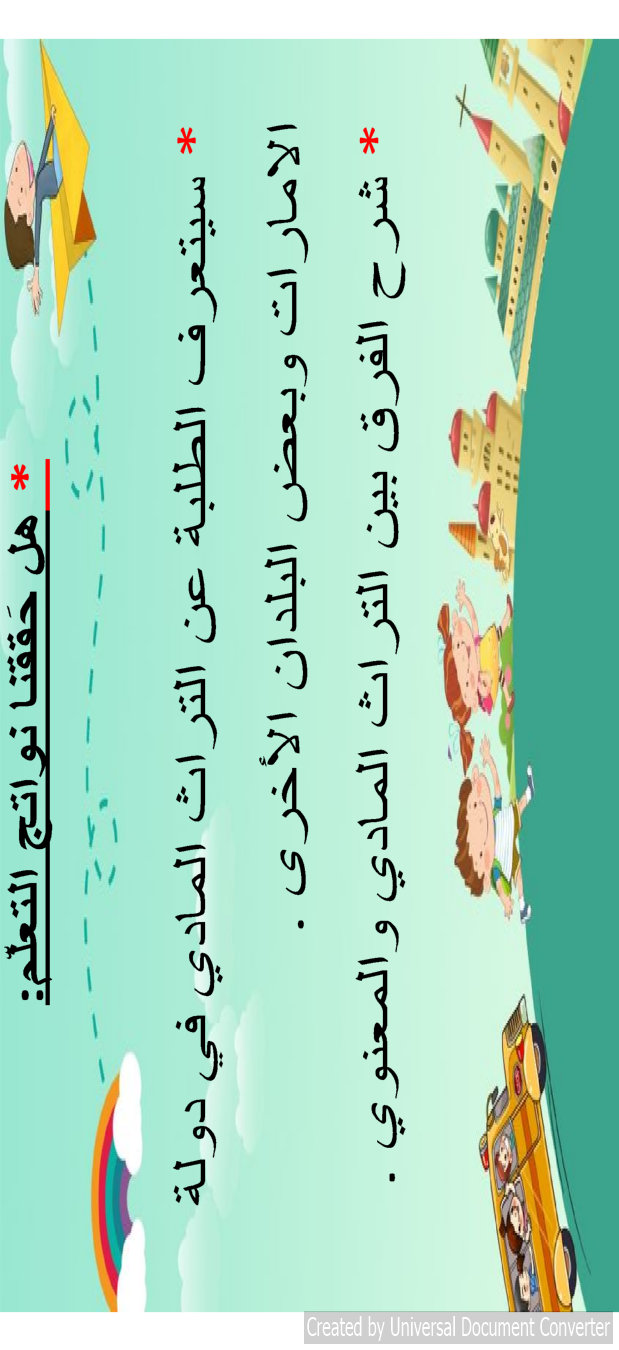 * هل حَققنا نواتج التعلّم:
* سيتعرف الطلبة عن التراث المادي في دولة
الامارات وبعض البلدان الأخرى .
* شرح الفرق بين التراث المادي والمعنوي .
Created by Universal Document Converter